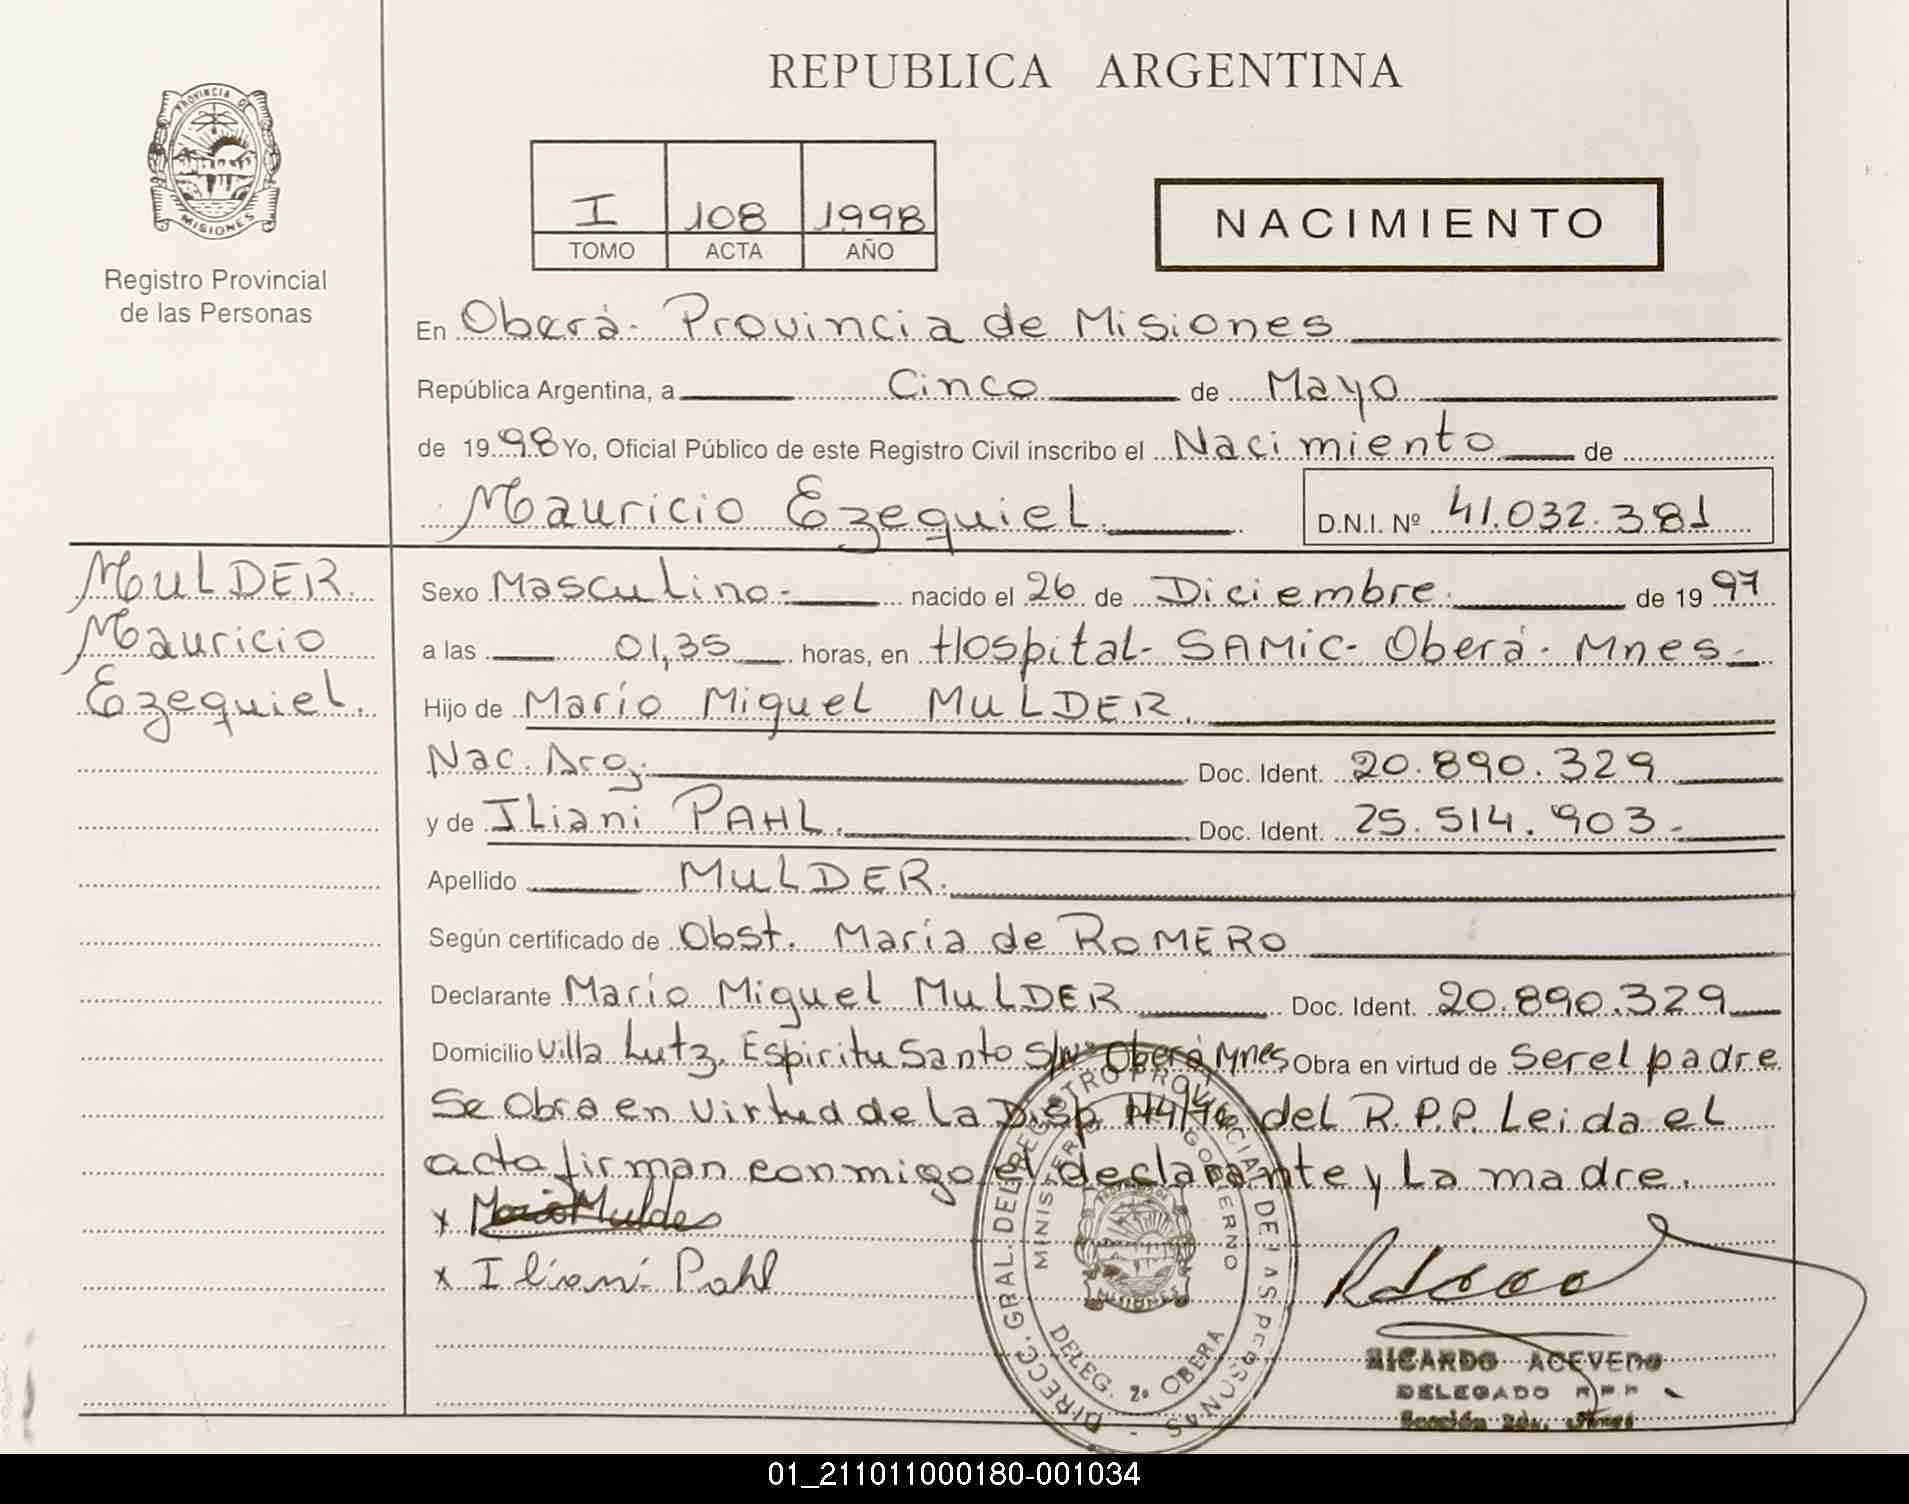 REPUBLICA ARGENTINA
PROVINCIA DE
MISIONES
Registro Provincial
de las Personas
I 108 1998
TOMO ACTA AÑO
NACIMIENTO
En Oberá- Provincia de Misiones
República Argentina, a Cinco de Mayo
de 1998 Yo, Oficial Público de este Registro Civil inscribo el Nacimiento de
Mauricio Ezequiel. D.N.I. Nº 41.032.381
MULDER.
Mauricio
Ezequiel.
Sexo Masculino- nacido el 26 de Diciembre. de 1997
a las 01,35 horas, en Hospital- SAMIC- Oberá- Mnes-
Hijo de Mario Miguel MULDER.
Nac. Arg. Doc. Ident. 20.890.329
y de Iliani PAHL. Doc. Ident. 25.514.903-
Apellido MULDER.
Según certificado de Obst. María de ROMERO
Declarante Mario Miguel MULDER Doc. Ident. 20.890.329
Domicilio Villa Lutz. Espiritu Santo S/Nº Oberá Mnes Obra en virtud de Ser el padre
Se Obra en virtud de la Disp. del R.P.P. Leida el
acta firman conmigo el declarante y La madre.
x Mario Mulder
x Iliani Pahl
DIRECC. GRAL. DEL REGISTRO PROVINCIAL DE LAS PERSONAS
MINISTERIO GOBIERNO
MISIONES
DELEG. 2ª OBERA
RICARDO ACEVEDO
DELEGADO R.P.P.
Sección 2da.
01_211011000180-001034